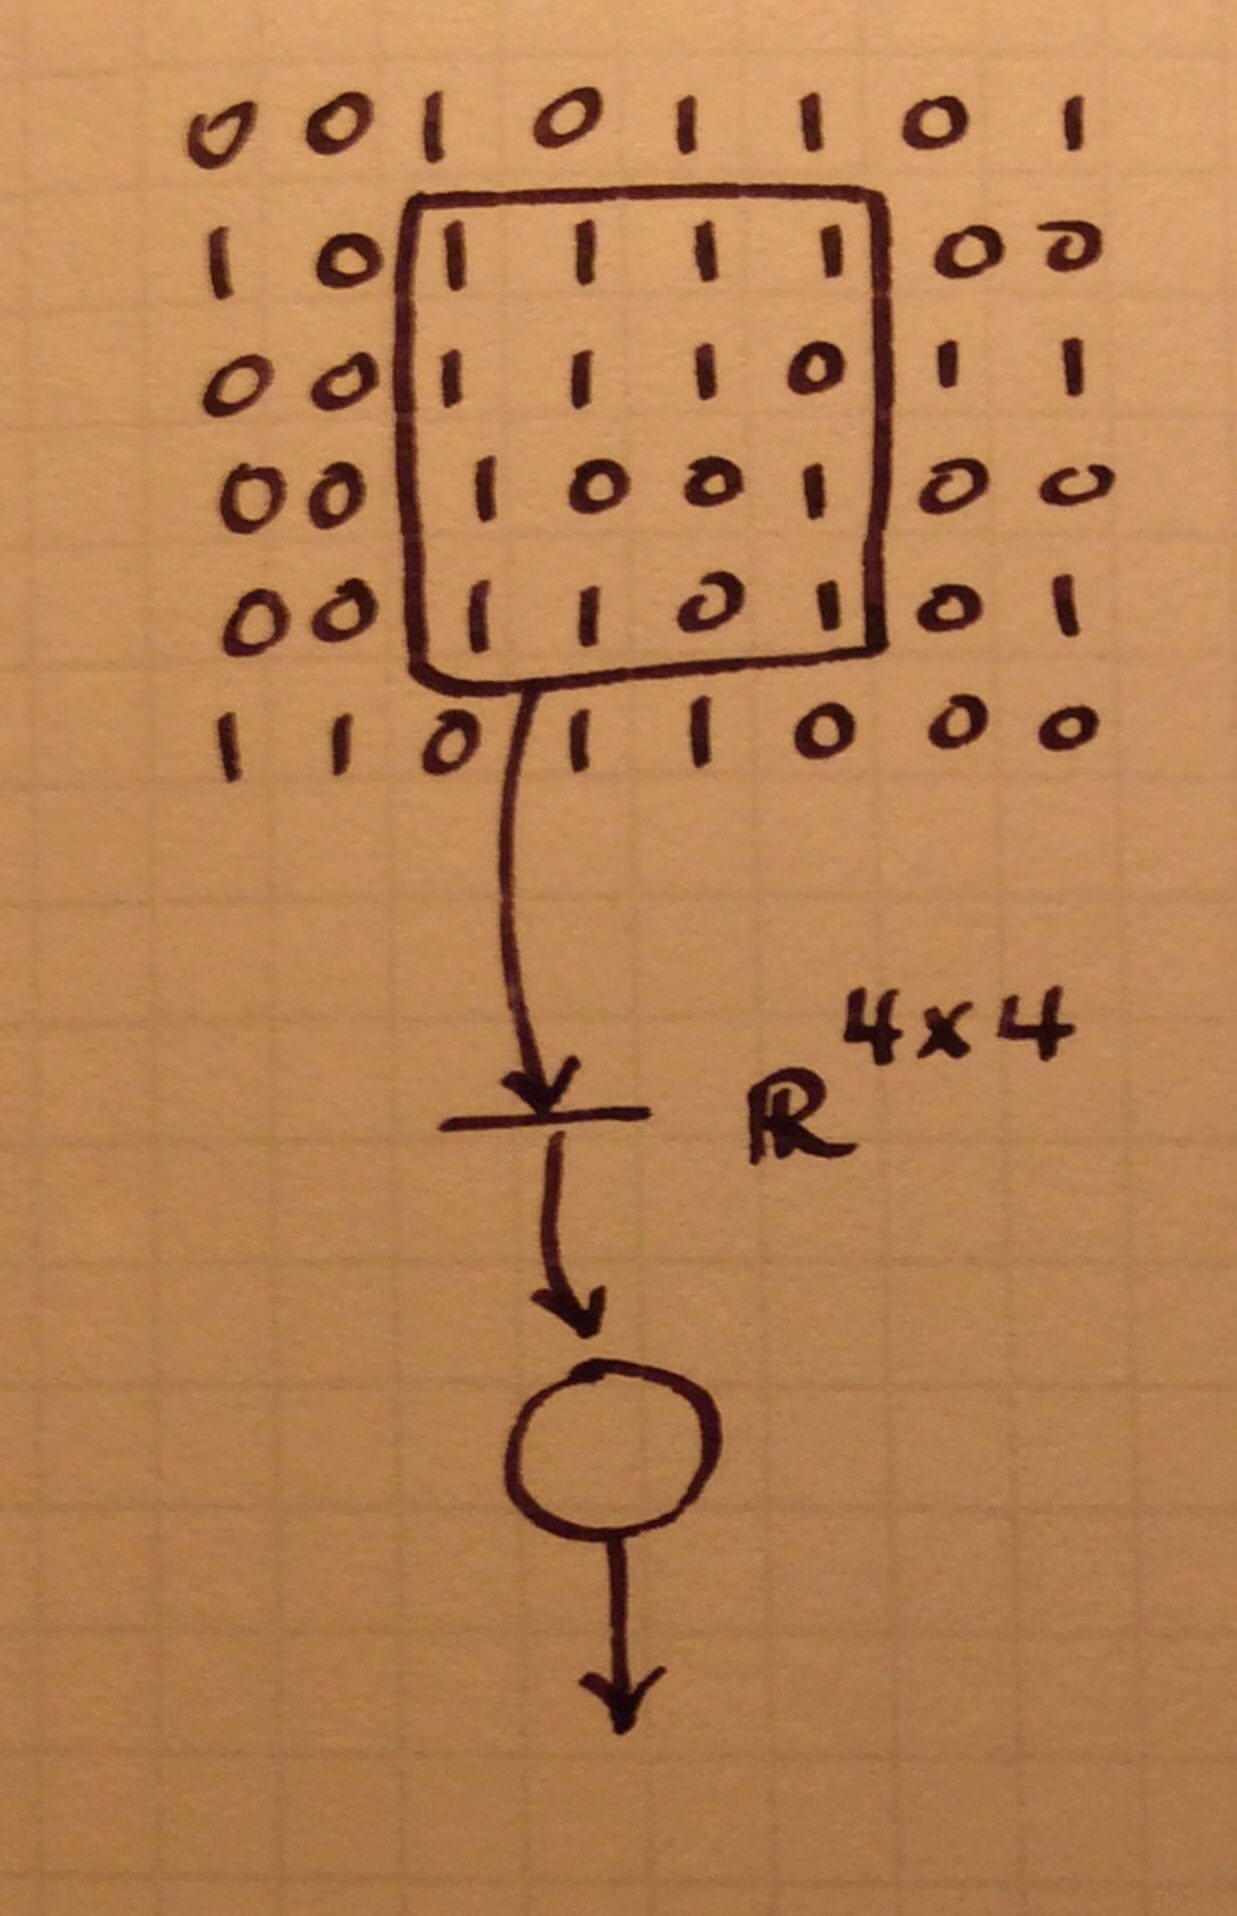 0 0 1 0 1 1 0 1
1 0 1 1 1 1 0 0
0 0 1 1 1 0 1 1
0 0 1 0 0 1 0 0
0 0 1 1 0 1 0 1
1 1 0 1 1 0 0 0
ℝ^4×4